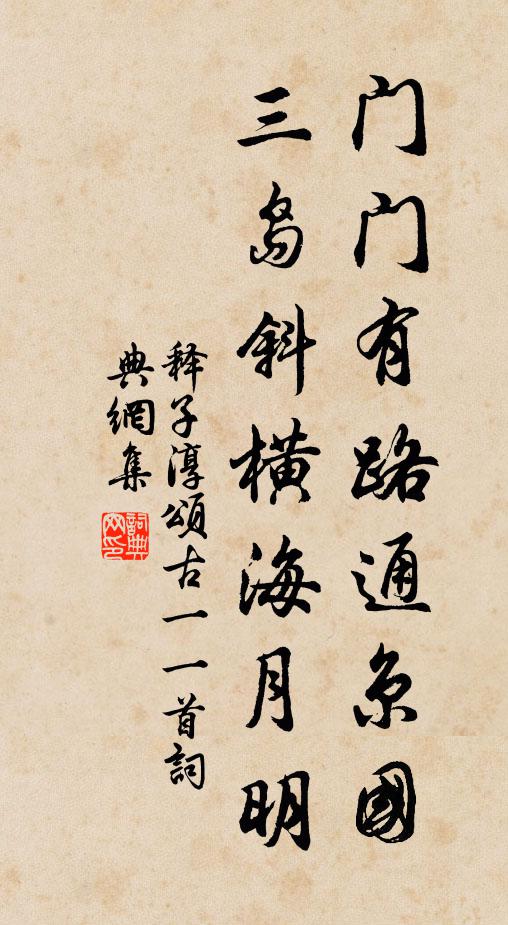 门门有路通京國
三岛斜横海月明
释子淳頌古一一首詞
典網集
詞典
网印